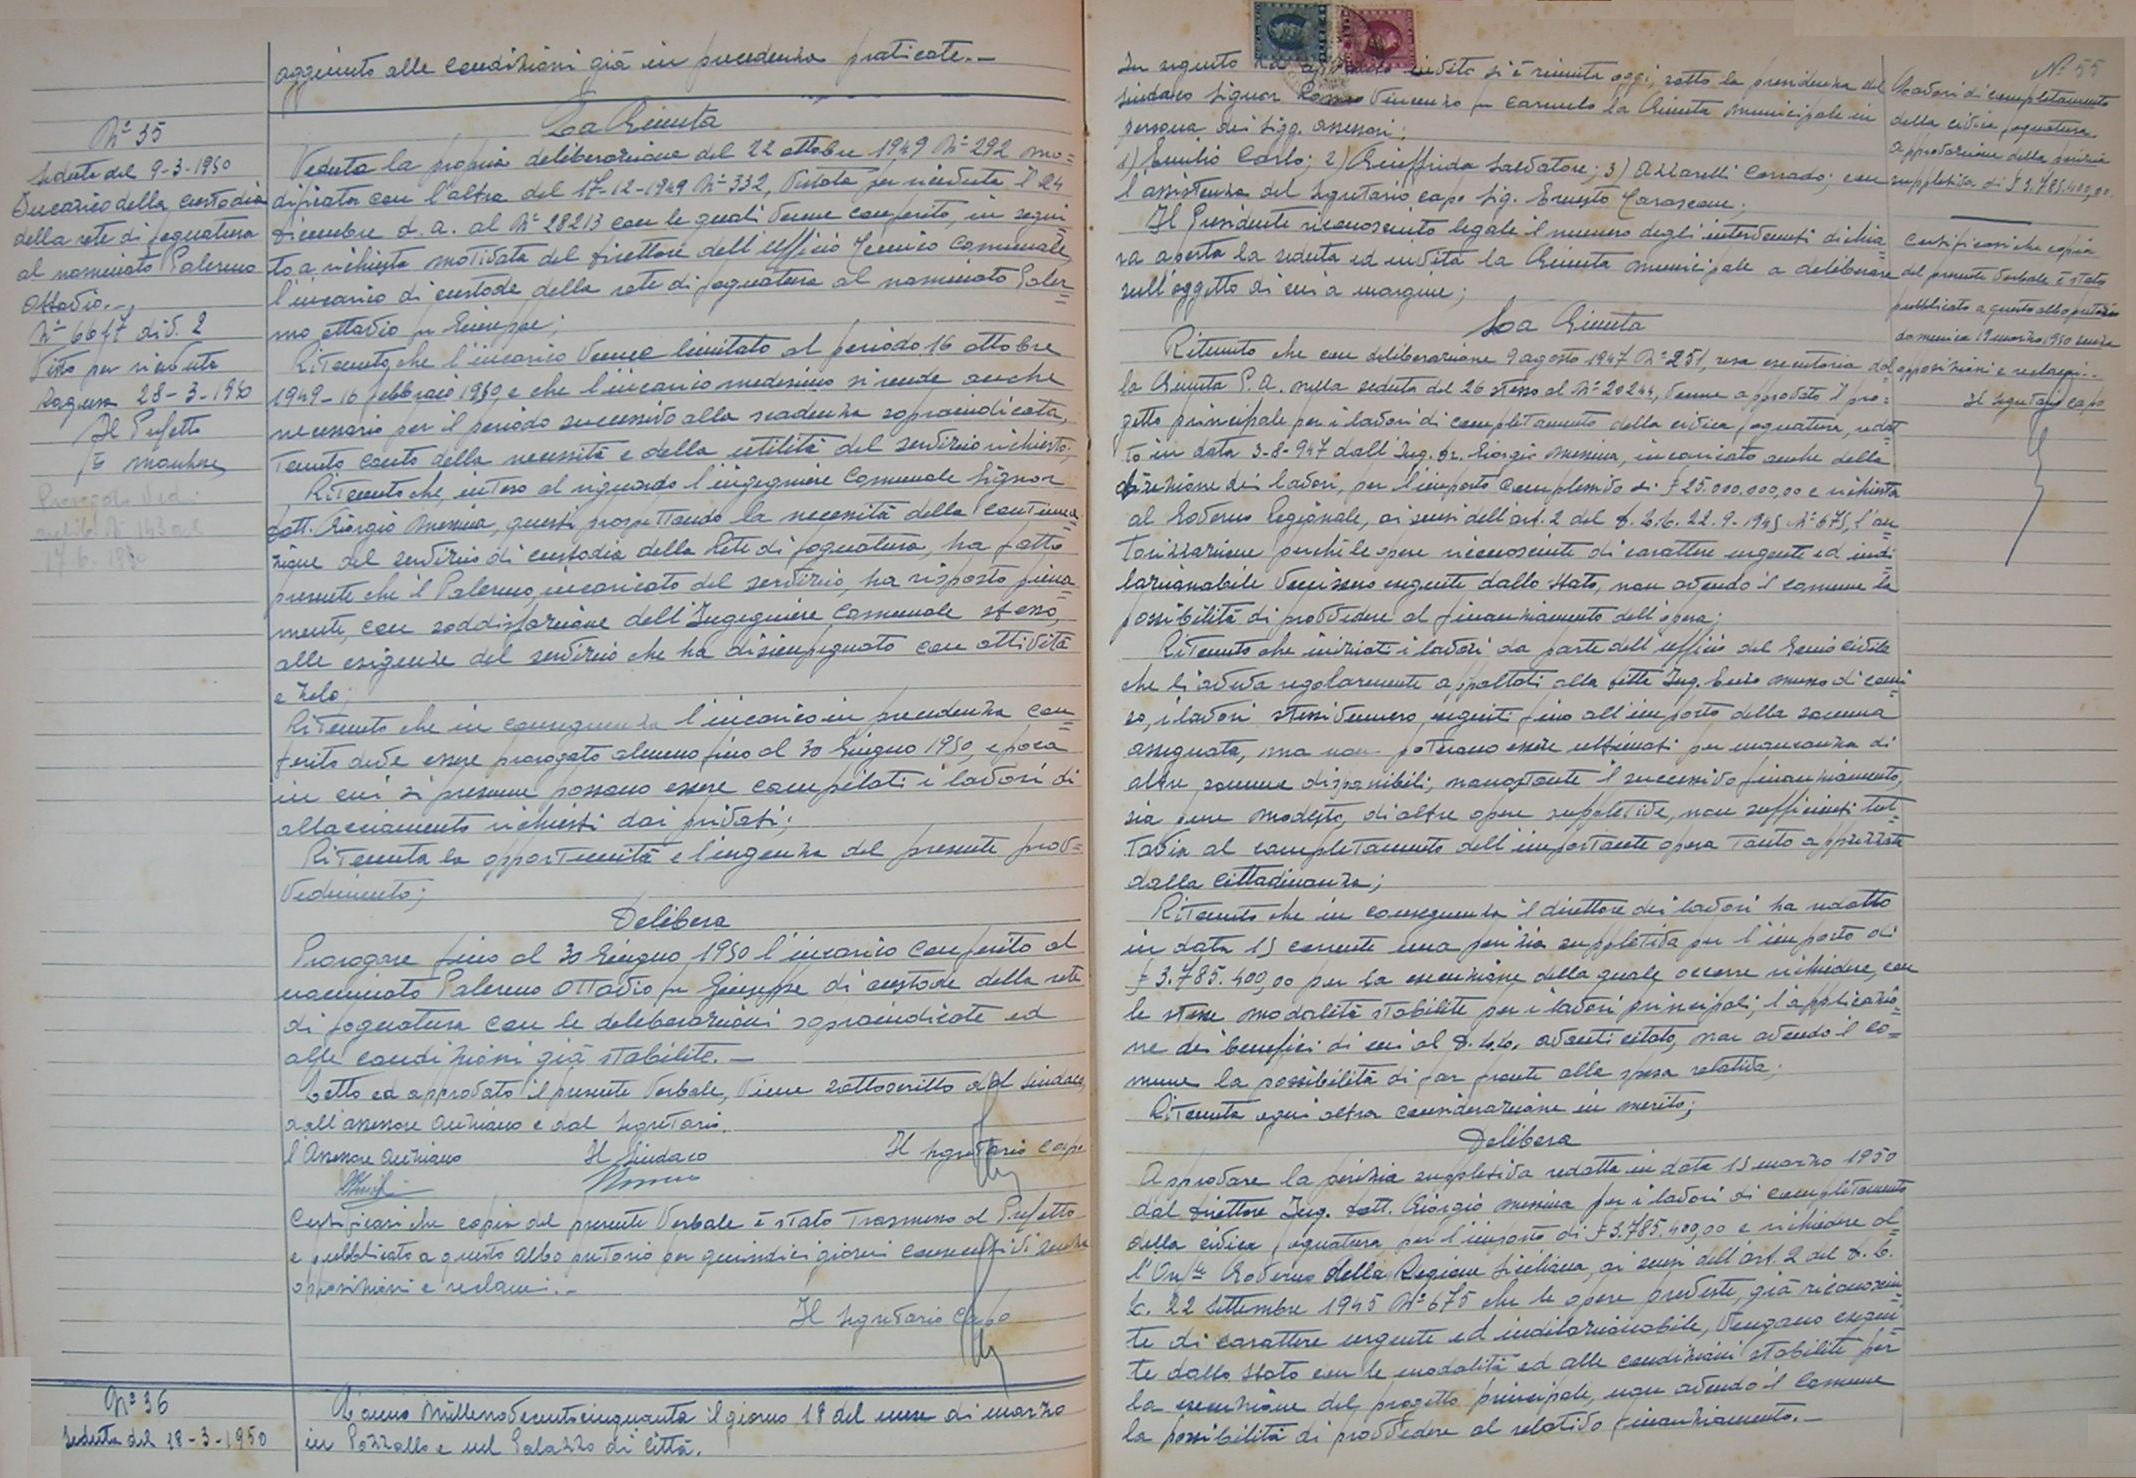 aggiunto alle condizioni già in precedenza praticate.-
La Giunta
N° 35
Seduta del 9-3-1950
Incarico della custodia
della rete di fognatura
al nominato Palermo
Ottavio.-
N° 6617 div. 2
Visto per ricevuta
Ragusa 28-3-1950
Il Prefetto
Veduta la propria deliberazione del 22 ottobre 1949 N° 292 mo=
dificata con l'altra del 17-12-1949 N° 332, vistata per ricevuta il 24
dicembre d. a. al N° 28213 con le quali venne conferito, in segui=
to a richiesta motivata del Direttore dell'Ufficio Tecnico Comunale,
l'incarico di custode della rete di fognatura al nominato Paler=
mo Ottavio fu Giuseppe;
Ritenuto che l'incarico venne limitato al periodo 16 ottobre
1949-16 febbraio 1950 e che l'incarico medesimo si rende anche
necessario per il periodo successivo alla scadenza sopraindicata,
tenuto conto della necessità e della utilità del servizio richiesto;
Ritenuto che, inteso al riguardo l'ingegnere Comunale Signor
Dott. Giorgio Messina, questi, prospettando la necessità della continua=
zione del servizio di custodia della Rete di fognatura, ha fatto
presente che il Palermo, incaricato del servizio, ha risposto piena=
mente, con soddisfazione dell'Ingegnere Comunale stesso,
alle esigenze del servizio che ha disimpegnato con attività
e zelo;
Ritenuto che in conseguenza l'incarico in precedenza con=
ferito deve essere prorogato almeno fino al 30 Giugno 1950, epoca
in cui si presume possano essere compitati i lavori di
allacciamento richiesti dai privati;
Ritenuta la opportunità e l'urgenza del presente prov=
vedimento;
Delibera
Prorogare fino al 30 Giugno 1950 l'incarico conferito al
nominato Palermo Ottavio fu Giuseppe di custode della rete
di fognatura con le deliberazioni sopraindicate ed
alle condizioni già stabilite.-
Letto ed approvato il presente verbale, viene sottoscritto dal Sindaco,
dall'assessore anziano e dal Segretario.
l'Assessore Anziano Il Sindaco Il Segretario Capo
Certificasi che copia del presente verbale è stato trasmesso al Prefetto
e pubblicato a questo albo pretorio per quindici giorni consecutivi senza
opposizioni e reclami.-
Il Segretario Capo
N° 36
Seduta del 18-3-1950
L'anno Millenovecentocinquanta il giorno 18 del mese di marzo
in Pozzallo e nel Palazzo di Città.
N° 55
In seguito ad invito si è riunita oggi, sotto la presidenza del
Sindaco Signor Vincenzo fu Carmelo la Giunta Municipale in
persona dei Sigg. Assessori:
1) Emilio Carlo; 2) Giuffrida Salvatore; 3) Azzarelli Corrado; con
l'assistenza del Segretario capo Sig. Ernesto
Il Presidente riconosciuto legale il numero degli intervenuti dichia=
ra aperta la seduta ed invita la Giunta Municipale a deliberare
sull'oggetto di cui a margine;
La Giunta
Lavori di completamento
della civica fognatura.
Approvazione della perizia
suppletiva di £ 3.785.400,00.
Certificasi che copia
del presente verbale è stato
pubblicato a questo albo pretorio
domenica 19 marzo 1950 senza
opposizioni e reclami.-
Il Segretario Capo
Ritenuto che con deliberazione 9 agosto 1947 N° 251, resa esecutoria dal=
la Giunta P. A. nella seduta del 26 stesso al N° 20244, venne approvato il pro=
getto principale per i lavori di completamento della civica fognatura, redat=
to in data 3-8-947 dall'Ing. Dr. Giorgio Messina, incaricato anche della
direzione dei lavori, per l'importo complessivo di £ 25.000.000,00 e richiesta
al Governo Regionale, ai sensi dell'art. 2 del D. L. L. 22.9.1945 N° 675, l'au=
torizzazione perchè le opere riconosciute di carattere urgente ed indi=
lazionabile venissero eseguite dallo Stato, non avendo il comune la
possibilità di provvedere al finanziamento dell'opera;
Ritenuto che iniziati i lavori da parte dell'ufficio del Genio Civile
che li aveva regolarmente appaltati alla Ditta Ing. di Comi=
so, i lavori stessi vennero eseguiti fino all'importo della somma
assegnata, ma non poterono essere ultimati per mancanza di
altre somme disponibili, nonostante il successivo finanziamento,
sia pure modesto, di altre opere suppletive, non sufficienti tut=
tavia al completamento dell'importante opera tanto apprezzata
dalla cittadinanza;
Ritenuto che in conseguenza il direttore dei lavori ha redatto
in data 15 corrente una perizia suppletiva per l'importo di
£ 3.785.400,00 per la esecuzione della quale occorre richiedere, con
le stesse modalità stabilite per i lavori principali, l'applicazio=
ne dei benefici di cui al D. L. L. avanti citato, non avendo il Co=
mune la possibilità di far fronte alla spesa relativa;
Ritenuta ogni altra considerazione in merito;
Delibera
Approvare la perizia suppletiva redatta in data 15 marzo 1950
dal Direttore Ing. Dott. Giorgio Messina per i lavori di completamento
della civica fognatura per l'importo di £ 3.785.400,00 e richiedere al=
l'On.le Governo della Regione Siciliana, ai sensi dell'art. 2 del D. L.
L. 22 Settembre 1945 N° 675 che le opere predette, già riconosciu=
te di carattere urgente ed indilazionabile, vengano esegui=
te dallo Stato con le modalità ed alle condizioni stabilite per
la esecuzione del progetto principale, non avendo il Comune
la possibilità di provvedere al relativo finanziamento.-